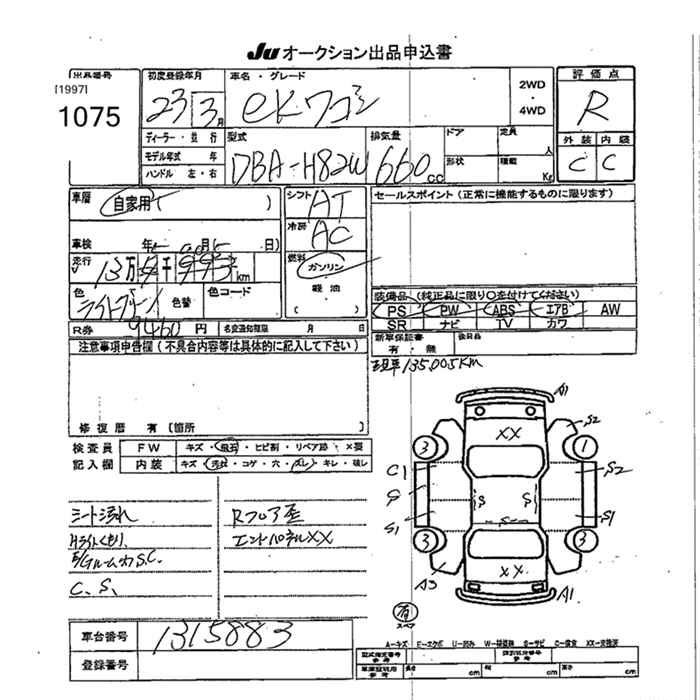 JU オークション出品申込書
出品番号
[1997]
1075
初度登録年月
23 3月
車名・グレード
eKワゴン
2WD
・
4WD
評価点
R
外装 内装
C C
ディーラー・並行
モデル年式 年
ハンドル 左・右
型式
DBA-H82W
排気量
660cc
ドア
形状
定員
人
積載
Kg
車歴
自家用 ( )
シフト
AT
冷房
AC
燃料
ガソリン
軽油
( )
車検 年 月 日)
走行
13万5千995km
色
ライトグリーン
色替
色コード
R券 9460円
名変通知期限 月 日
セールスポイント (正常に機能するものに限ります)
装備品 (純正品に限り○を付けてください)
PS PW ABS エアB AW
SR ナビ TV カワ
新車保証書
有・無
後日品
現車135,005KM
注意事項申告欄 (不具合内容等は具体的に記入して下さい)
修復歴 有 [箇所 ]
検査員
記入欄
FW キズ・飛石・ヒビ割・リペア跡・×要
内装 キズ・汚れ・コゲ・穴・スレ・キレ・破レ
シート汚れ
Hライトくもり
E/Gルームカ S.C.
C.S.
Rフロア歪
エンドパネルXX
A1
S2
XX
3
1
C1
S2
S
S
S
S1
S
S1
3
3
A3
XX
A1
有
スペア
A-キズ E-エクボ U-凹み W-補修跡 S-サビ C-腐食 XX-交換済
車台番号
1315883
登録番号
型式指定番号
参考
類別区分番号
参考
車庫証明用
参考
長さ cm 幅 cm 高さ cm